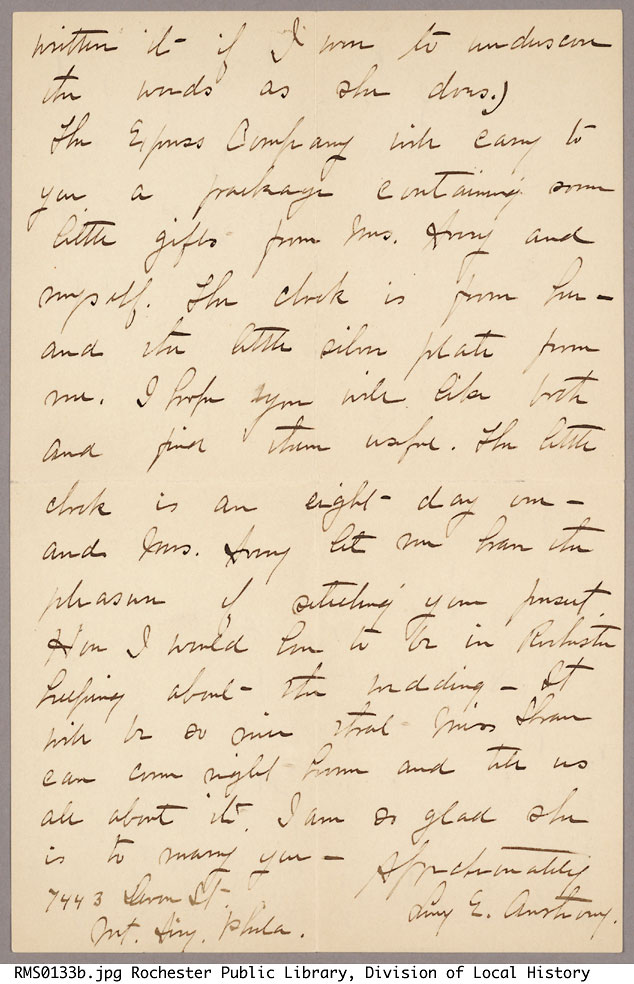 written it - if I were to underscore
the words as she does.)
The Express Company will carry to
you a package containing some
little gifts from Mrs. Avery and
myself. The clock is from her -
and the little silver plate from
me. I hope you will like both
and find them useful. The little
clock is an eight-day one -
and Mrs. Avery let me have the
pleasure of selecting your present.
How I would love to be in Rochester
helping about the wedding - It
will be so nice that Miss Shaw
can come right home and tell us
all about it. I am so glad she
is to marry you -
Affectionately
7443 St.
Mt. Airy. Phila.
Lucy E. Anthony.
RMS0133b.jpg Rochester Public Library, Division of Local History